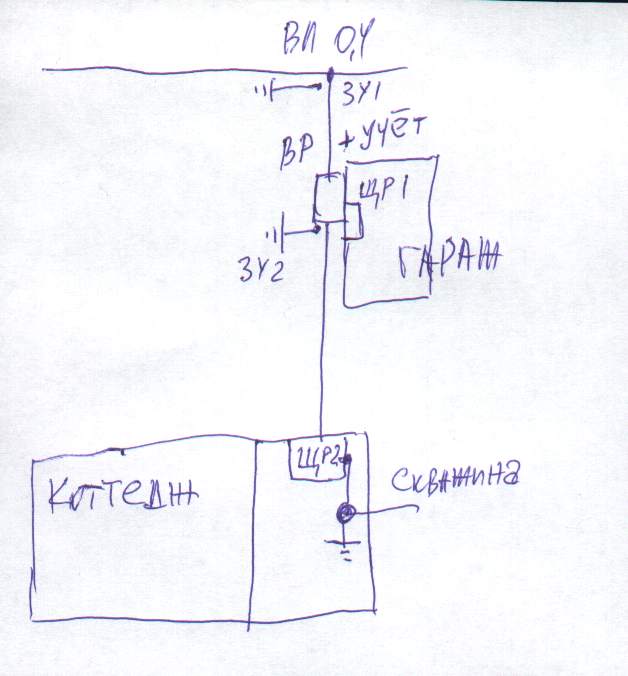 ВЛ 0,4
ЗУ1
ВР + УЧЁТ
ЩР1
ГАРАЖ
ЗУ2
ЩР2
КОТТЕДЖ
СКВАЖИНА